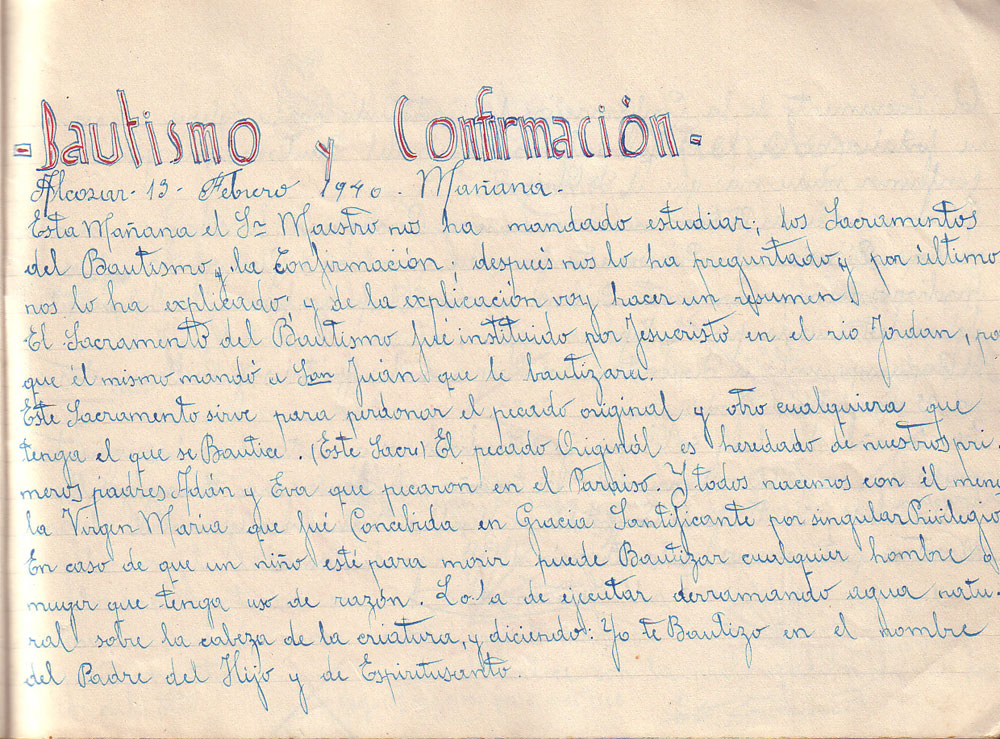 - Bautismo y Confirmación -
Alcozar - 13 - Febrero 1940. Mañana -
Esta Mañana el Sr Maestro nos ha mandado estudiar; los Sacramentos
del Bautismo y la Confirmación; después nos lo ha preguntado y por último
nos lo ha explicado, y de la explicación voy hacer un resumen.
El Sacramento del Bautismo fué instituido por Jesucristo en el rio Jordan, por
que él mismo mandó a San Juán que le bautizara.
Este Sacramento sirve para perdonar el pecado original y otro cualquiera que
tenga el que se Bautice. (Este Sacre) El pecado Originál es heredado de nuestros pri-
meros padres Adán y Eva que pecaron en el Paraiso. Y todos nacemos con él meno
la Virgen Maria que fué Concebida en Gracia Santificante por singular Privilegio
En caso de que un niño esté para morir puede Bautizar cualquir hombre o
muger que tenga uso de razón. Lo a de ejecutar derramando agua natu-
ral sobre la cabeza de la criatura, y diciendo: Yo te Bautizo en el nombre
del Padre del Hijo y de Espiritusanto.